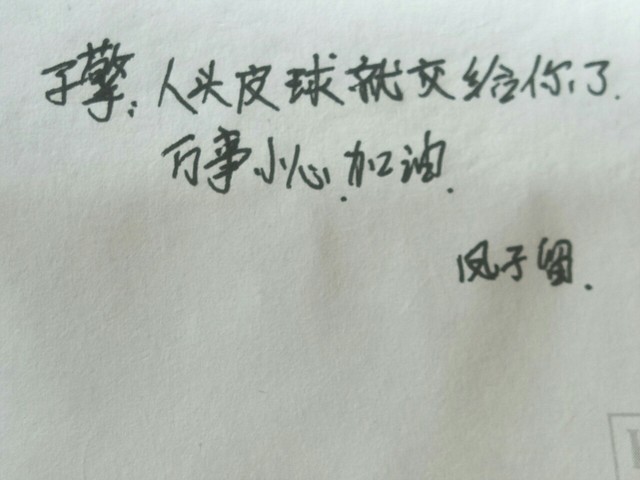 子擎:人头皮球就交给你了.
万事小心.加油.
凤子留.